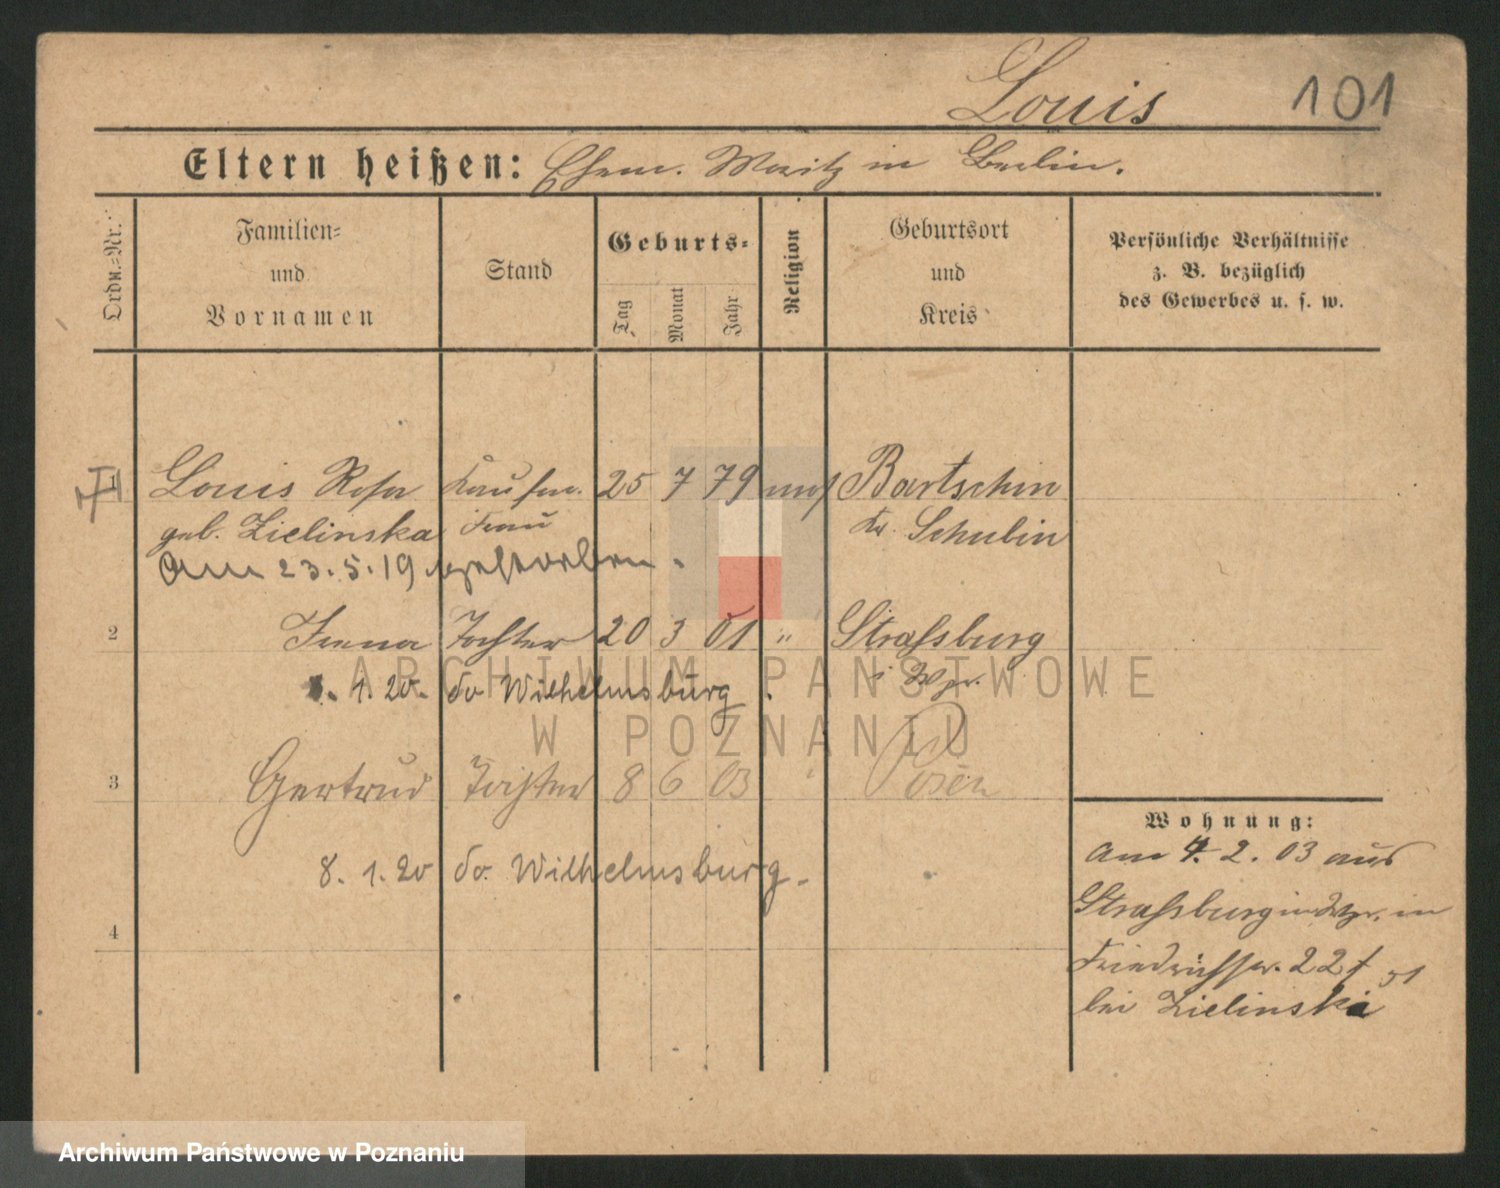 Louis 101
Eltern heißen: Ehem. Moritz in Berlin.
Ordn.-Nr.
Familien-
und
Vornamen
Stand
Geburts-
Tag
Monat
Jahr
Religion
Geburtsort
und
Kreis
Persönliche Verhältnisse
z. B. bezüglich
des Gewerbes u. s. w.
1 Louis Rosa Kaufm. 25 7 79 mos Bartschin
geb. Zielinska Frau Kr. Schubin
Am 23.5.19 gestorben.
2 Irena Tochter 20 3 01 " Strassburg
1.20. do Wilhelmsburg. i Wpr.
3 Gertrud Tochter 8 6 03 Posen
8.1.20 do. Wilhelmsburg.
4
Wohnung:
Am 4.2.03 aus
Strassburg in Wpr. in
Friedrichstr. 22 I
bei Zielinski
ARCHIWUM PAŃSTWOWE
W POZNANIU
Archiwum Państwowe w Poznaniu